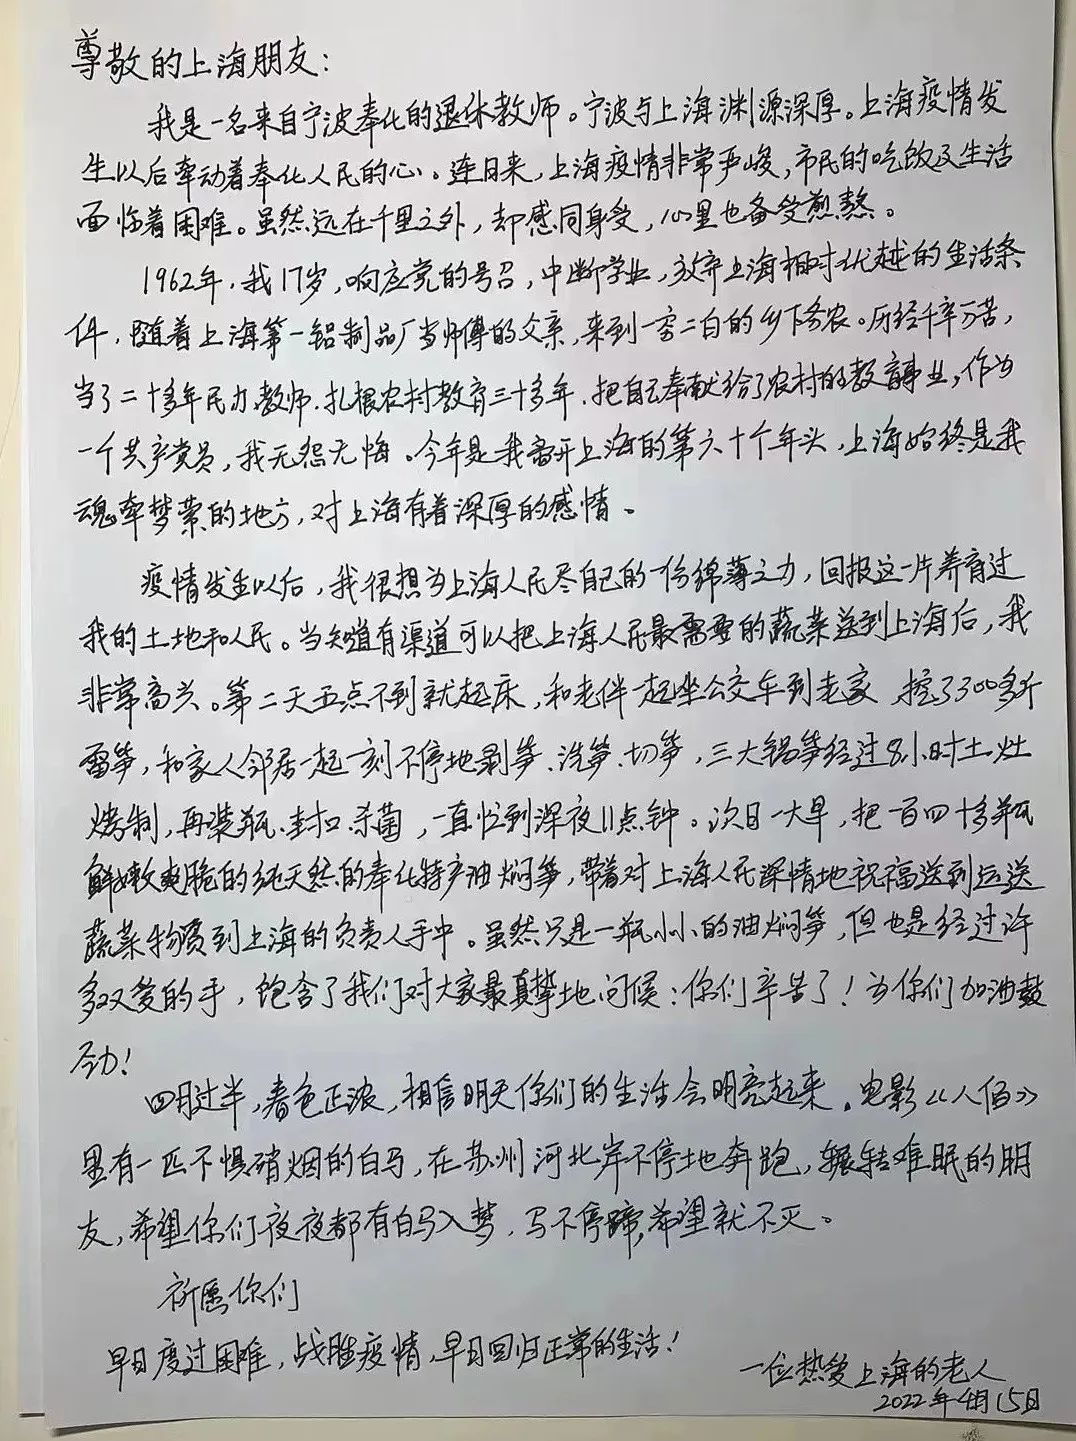 尊敬的上海朋友：
我是一名来自宁波奉化的退休教师。宁波与上海渊源深厚。上海疫情发
生以后牵动着奉化人民的心。连日来，上海疫情非常严峻，市民的吃饭及生活
面临着困难。虽然远在千里之外，却感同身受，心里也备受煎熬。
1962年，我17岁，响应党的号召，中断学业，放弃上海相对优越的生活条
件，随着上海第一铝制品厂当师傅的父亲，来到一穷二白的乡下务农。历经千辛万苦，
当了二十多年民办教师，扎根农村教育三十多年，把自己奉献给了农村的教育事业，作为
一个共产党员，我无怨无悔。今年是我离开上海的第六十个年头，上海始终是我
魂牵梦萦的地方，对上海有着深厚的感情。
疫情发生以后，我很想为上海人民尽自己的一份绵薄之力，回报这一片养育过
我的土地和人民。当知道有渠道可以把上海人民最需要的蔬菜送到上海后，我
非常高兴。第二天五点不到就起床，和老伴一起坐公交车到老家，挖了300多斤
雷笋，和家人邻居一起一刻不停地剥笋、洗笋、切笋，三大锅笋经过8小时土灶
烤制，再装瓶、封扣、杀菌，一直忙到深夜11点钟。次日一大早，把一百四十多瓶
鲜嫩爽脆的纯天然的奉化特产油焖笋，带着对上海人民深情地祝福送到运送
蔬菜物资到上海的负责人手中。虽然只是一瓶小小的油焖笋，但也是经过许
多双爱的手，饱含了我们对大家最真挚地问候：你们辛苦了！为你们加油鼓
劲！
四月过半，春色正浓，相信明天你们的生活会明亮起来。电影《八佰》
里有一匹不惧硝烟的白马，在苏州河北岸不停地奔跑，辗转难眠的朋
友，希望你们夜夜都有白马入梦，马不停蹄，希望就不灭。
祈愿你们
早日度过困难，战胜疫情，早日回归正常的生活！
一位热爱上海的老人
2022年4月15日